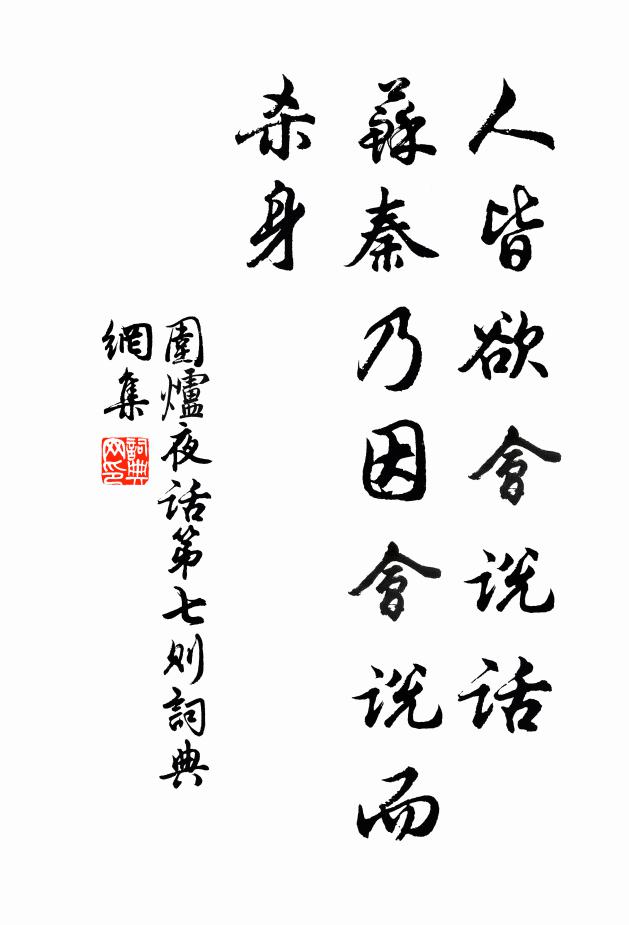 人皆欲會说话
蘇秦乃因會说而
杀身
圍爐夜话第七则詞典
網集
詞典
网印